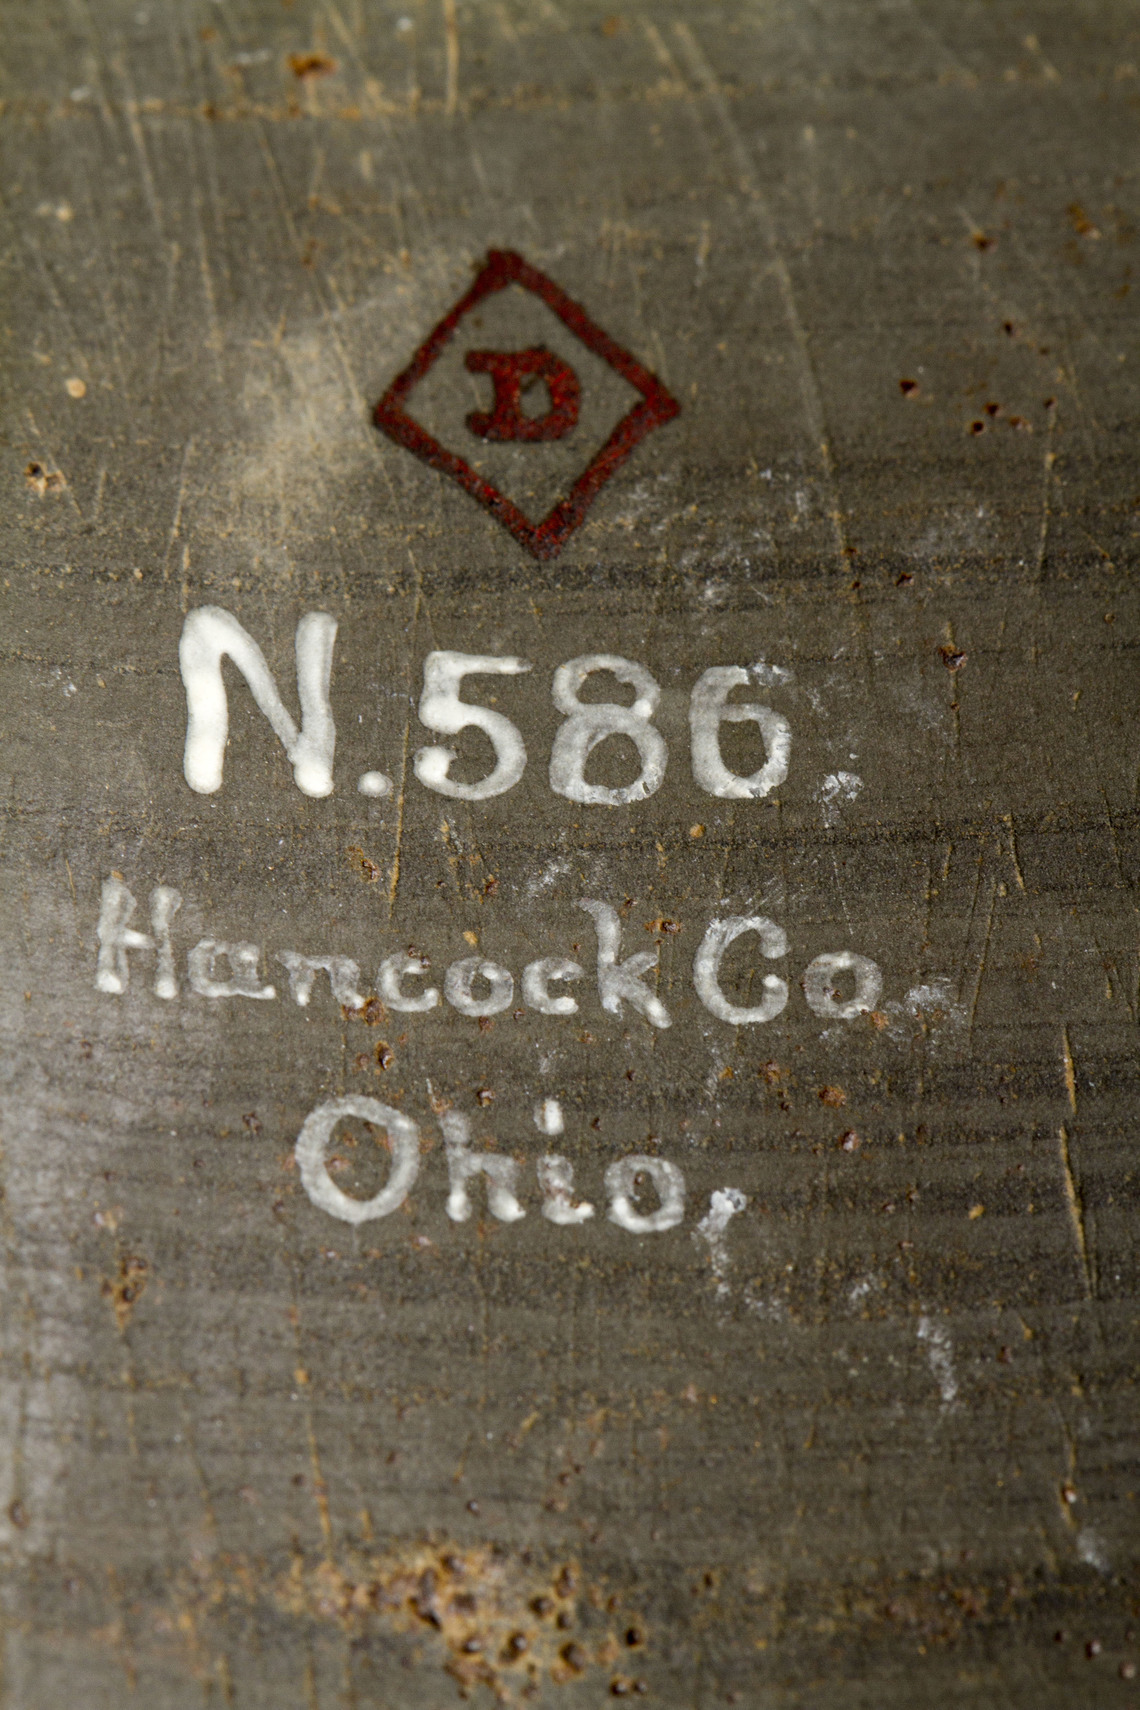 D
N.586.
Hancock Co.
Ohio,